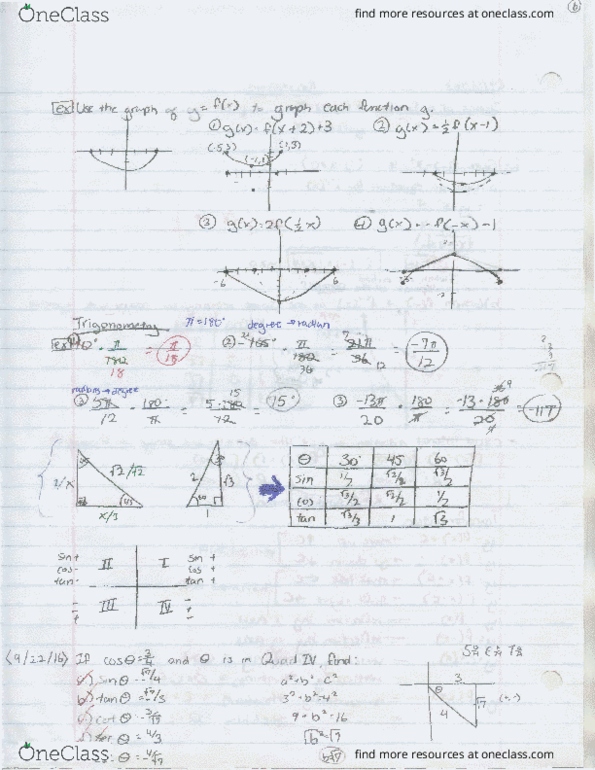 OneClass
find more resources at oneclass.com
6
ex Use the graph of y = f(x) to graph each function g.
① g(x) = f(x+2)+3
② g(x) = ½f(x-1)
(-5,3)
(-1,1)
(1,3)
③ g(x) = 2f(½x)
④ g(x) = -f(-x)-1
-6
6
Trigonometry
π = 180°
degree → radian
ex
π/180
18
= π/18
② -105° · π/180
36
12
= -7π/12
radians → degree
5π/12 · 180/π = 5·180/12 = 15°
15
③ -13π/20 · 180/π = -13·180/20 = -117°
9
√2/
2
√3
1
θ 30° 45 60
sin 1/2 √2/2 √3/2
cos √3/2 √2/2 1/2
tan √3/3 1 √3
sin +
cos -
tan -
II
I
sin +
cos +
tan +
III
IV
(9/22/16) If cosθ = 3/4 and θ is in Quad IV, find:
a) sinθ = -√7/4
b) tanθ = -√7/3
c) cotθ
secθ = 4/3
a² + b² = c²
3² + b² = 4²
9 + b² = 16
b² = 7
3
θ
4
√7
(+,-)
OneClass
find more resources at oneclass.com